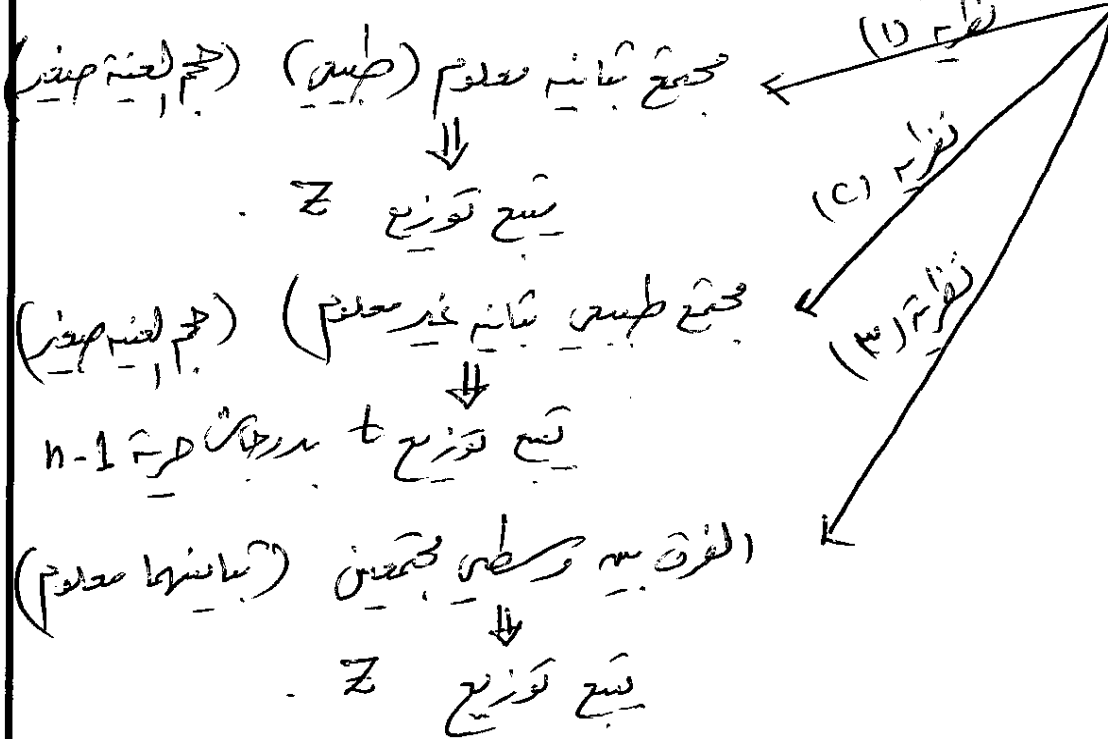 نظرية (١)
مجتمع تباينه معلوم (طبيعي) (حجم العينة صغير)
⇓
يتبع توزيع Z .
نظرية (٢)
مجتمع طبيعي تباينه غير معلوم) (حجم العينة صغير)
⇓
يتبع توزيع t بدرجات حرية n-1
نظرية (٣)
الفرق بين وسطي مجتمعين (تباينهما معلوم)
⇓
يتبع توزيع Z .